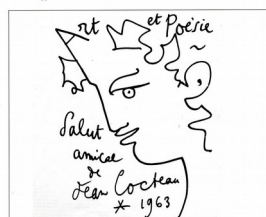 Art et poésie
Salut
amical
de
Jean Cocteau
* 1963